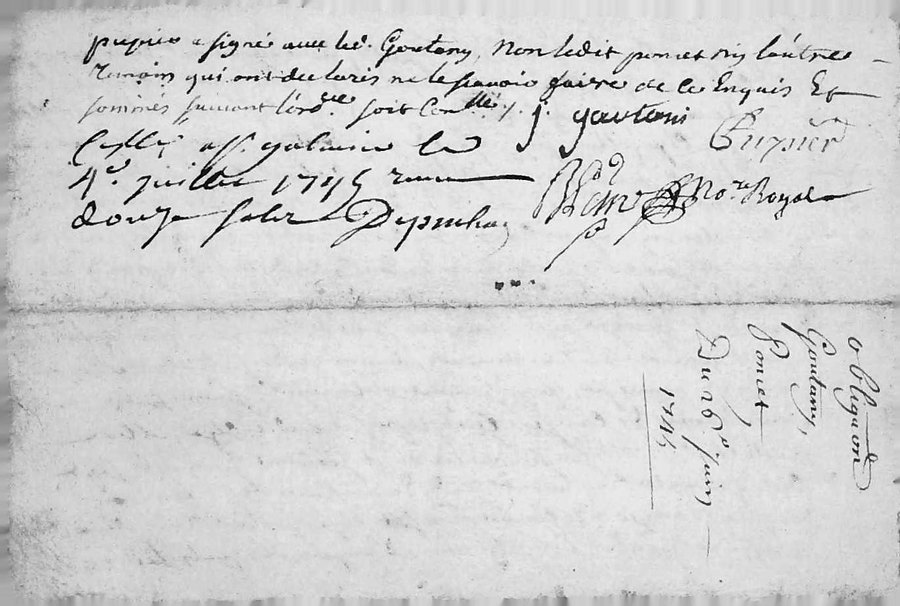 pupier a signé avec led. Goutany, Non ledit poncet ny l'autre
temoin qui ont declarés ne le scavoir faire de ce Enquis Et
sommés suivant l'ord.ce soit Con.llé /. j. goutani
Cpupier
Con.llé a St galmier le
4.e juillet 1745 reçu
douze sols Depinhac
No.re Royal
obliga.on
Goutany,
Poncet,
Du 26.e juin
1745